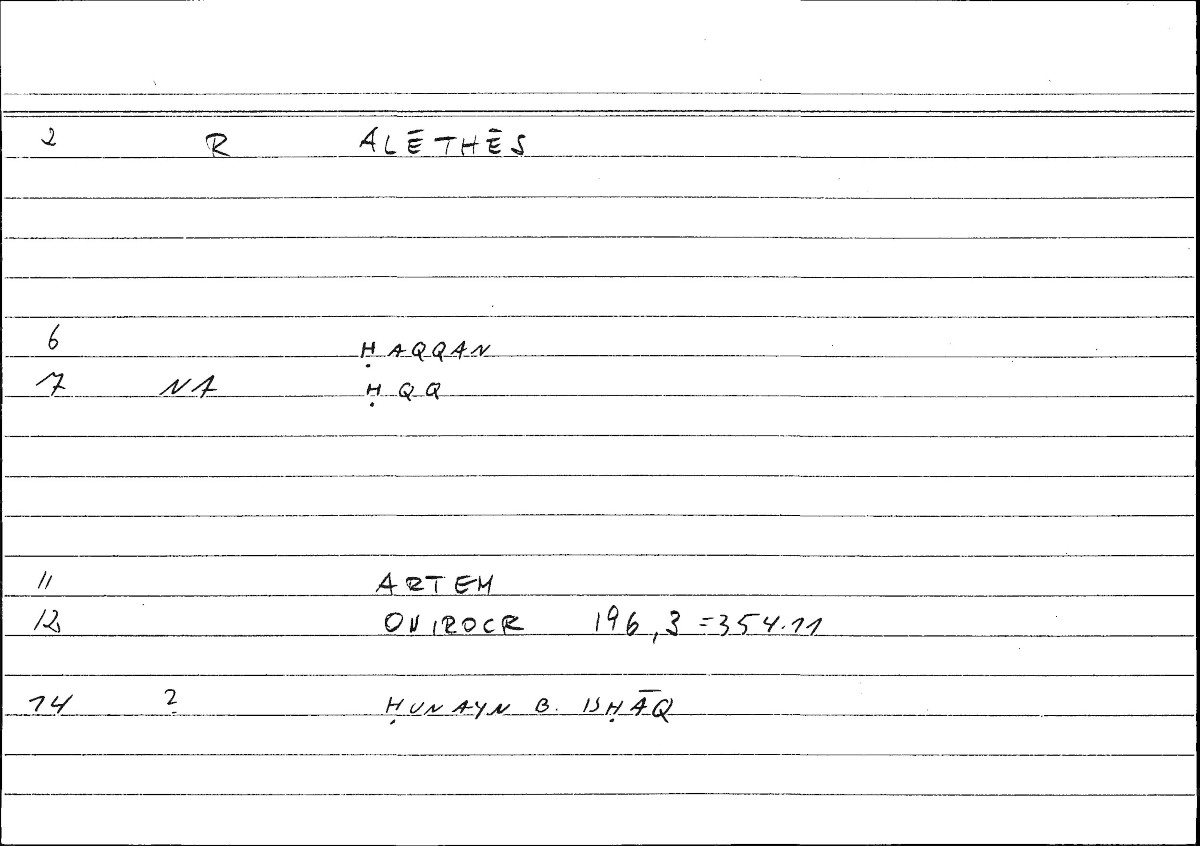 2 R ALĒTHĒS
6 ḤAQQAN
7 NA ḤQQ
11 ARTEM
12 ONIROCR 196,3=354.11
14 2 ḤUNAYN B. ISḤĀQ